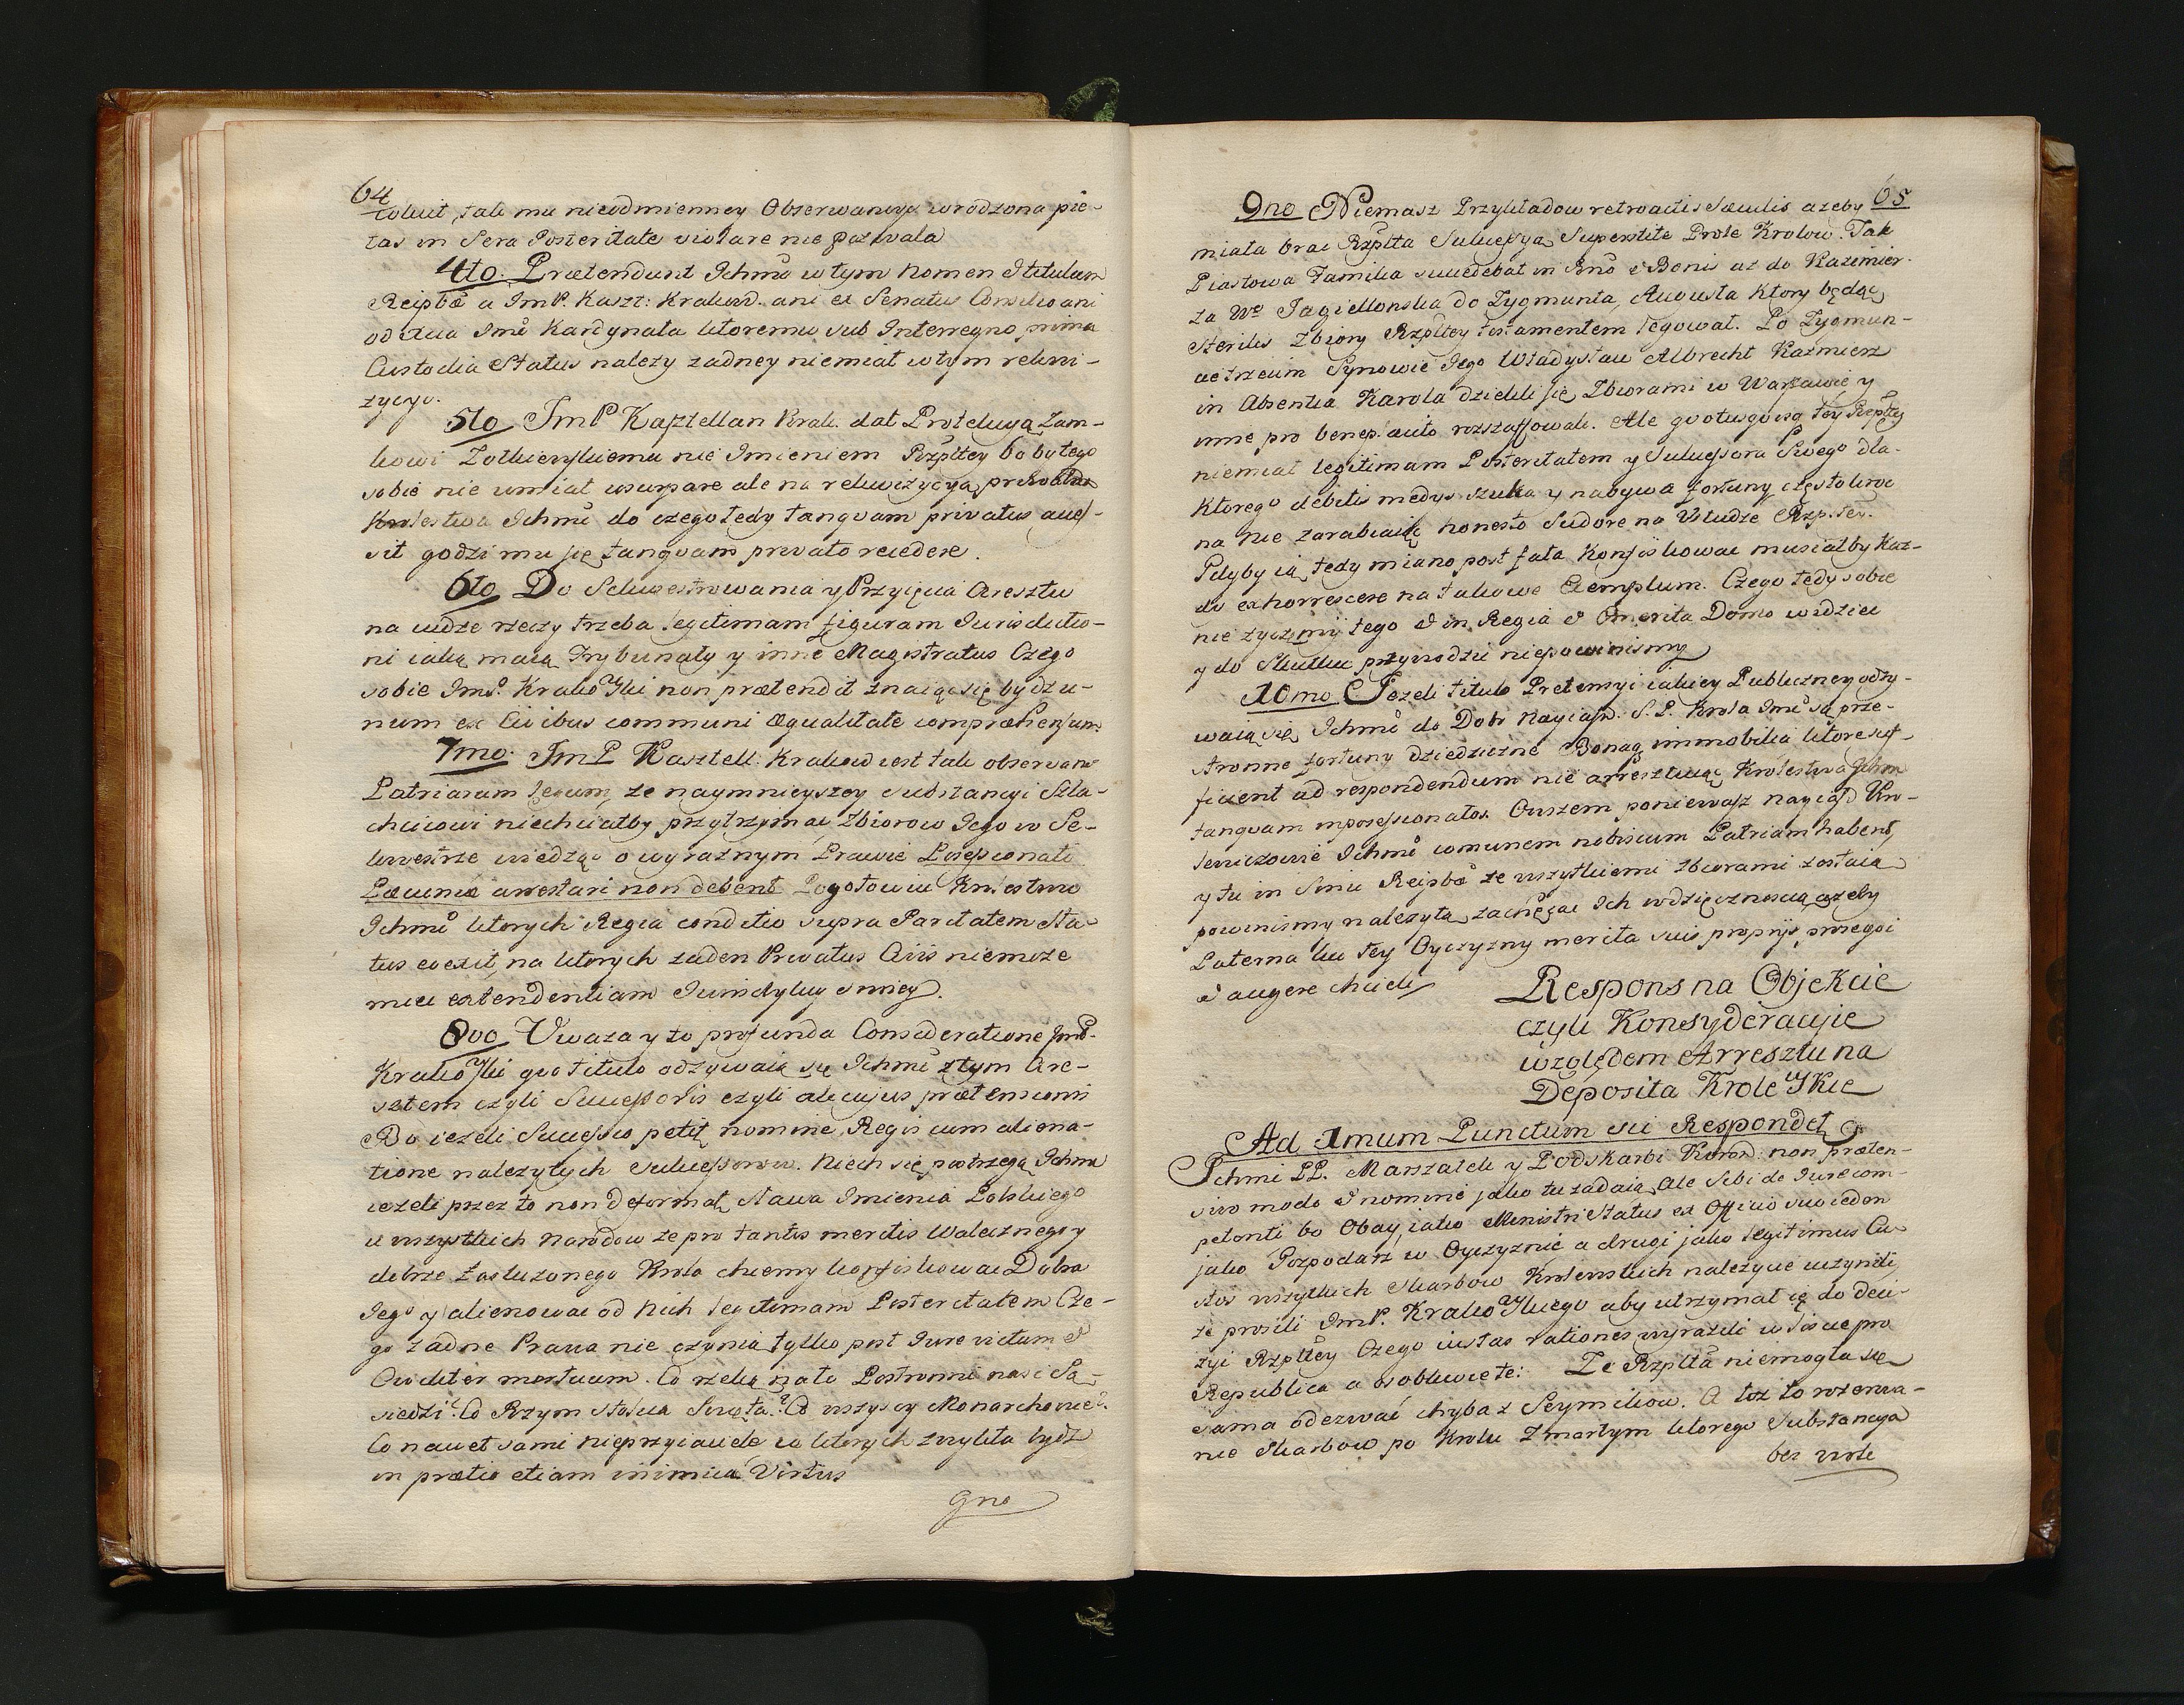 64
coluit, tak mu nieodmienney Obserwancya wrodzona pie-
tas in Sera Posteritate violare nie pozwala
4to. Prætendunt Ichmć w tym nomen & titulum
Reipbcæ a ImP. Kaszt: Krakow. ani ex Senatus Consilio ani
od Xcia Imć Kardynała ktoremu sub Interregno prima
Custodia Status nalezy zadney niemiał w tym rekwi-
zycyi.
5to ImP Kasztellan Krak. dał Protekcyą Zam-
kowi Zołkiewskiemu nie Imieniem Rzpltey bo by tego
sobie nie umiał usurpare ale na rekwizycyą
Krolestwa Ichmć do czego tedy tanquam privatus acces-
sit godzi mu się tanquam privato recedere.
6to Do Sekwestrowania y Przyięcia Aresztu
na cudze rzeczy trzeba legitimam figuram Jurisdictio-
ni iaką maią Trybunały y inne Magistratus Czego
sobie ImP. Krakoski non prætendit znaiąc się bydz u-
num ex Civibus communi æqualitate compræhensum
7mo. ImP Kasztell. Krakow iest tak observans
Patriarum legum, ze naymnieyszey substancyi Szla-
chcicowi niechciałby przytrzymać Zbiorow Iego w Se-
kwestrze wiedząc o wyraznym Prawie Possessionati
Pecuniæ arrestari non debent Pogotowiu Krolestwo
Ichmć ktorych Regia conditio supra Paritatem Sta-
tus evexit, na ktorych zaden Privatus Civis niemoze
miec extendentiam Jurisdykcyi swoiey.
8vo Uwaza y to profunda Consideratione ImP.
Krakoski quo titulo odzywaią się Ichmć z tym Are-
sztem czyli Successoris czyli alicujus prætensionis
Bo iezeli Successio petit nomine Regis cum aliena-
tione nalezytych Sukcessorow. Niech się postrzegą Ichmć
iezeli przez to non deformat Sława Imienia Polskiego
u wszystkich Narodow ze pro tantis meritis Walecznego y
dobrze Zasłuzonego Krola chcemy konfiskowac Dobra
Iego y alienowac od Nich legitimam Posteritatem Cze-
go zadne Prawa nie czynią tylko post Jure victum &
Civiliter mortuum. Co rzeką na to Postronni nasi Są-
siedzi? Co Rzym Stolica Swięta? Co wszyscy Monarchowie?
Co nawet sami nieprzyiaciele u ktorych zwykła bydz
in prætio etiam inimica Virtus
9no
65
9no Niemasz Przykładow retroactis Sæculis azeby
miała brac Rzplta Sukcessyą Superstite Prole Krolow. Tak
Piastowa Familia succedebat in Rno & Bonis az do Kazimier-
za Wo Jagiellonska do Zygmunta Augusta ktory będąc
Sterilis Zbiory Rzpltey testamentem legował. Po Zygmun-
cie trzecim Synowie Iego Władysław Albrecht Kazmierz
in Absentia Karola dzielili się Zbiorami w Warszawie y
inne pro beneplacito rozszaffowali. Ale quotusquisq tey Rzpltey
niemiał legitimam Posteritatem y Sukcessora Swego dla
Ktorego debitis medys szuka y nabywa fortuny częstokroc
na nie zarabiaiąc honesto Sudore na Usłudze Rzpltey.
Gdyby ią tedy miano post fata Konfiskowac musiałby kaz-
dy exhorrescere na takowe Exemplum. Czego tedy sobie
nie zyczymy tego & in Regia & Emerita Domo widziec
y do Skutku przywodzic niepowinismy
10mo Jezeli titulo Pretensyi iakiey Publiczney odzy-
waią się Ichmć do Dobr Nayiasn. S. P. Krola Imć są prze-
stronne fortuny dziedziczne Bonaq immobilia ktore suf-
ficient ad respondendum nie arresztuiąc Krolestwa Ichm
tanquam inpossessionatos. Owszem poniewasz Nayiasn Kro-
lewiczowie Ichmć comunem nobiscum Patriam habent,
y tu in Sinu Reipbcæ ze wszytkiemi Zbiorami zostaią
powinismy nalezytą zachęcac Ich wdzięcznoscią azeby
Paterna ku tey Oyczyzny merita suis proprijs prosequi
& augere chcieli
Respons na Objekcie
czyli Konsyderacyie
względem Arresztu na
Deposita Kroleskie
Ad 1mum Punctum sic Respondet
Ichmi PP. Marszałek y Podskarbi Koron: non præten-
sivo modo & nomine jako tu zadaią, ale Sibi de Jure com-
petenti bo Obay, iako Ministri Status ex Officio suo ieden
jako Gospodarz w Oyczyznie a drugi jako legitimus Cu-
stos wszytkich Skarbow Krolewskich nalezycie uczynili,
ze prosili ImP. Krakoskiego aby utrzymał ię do decy-
zyi Rzpltey Czego iustas rationes wyrazili w Liscie pro
Republica a osobliwie te: Ze Rzplta niemogła się
sama odezwać chyba z Seymikow. A toz to rozerwa-
nie Skarbow po Krolu Zmarłym ktorego Substancya
bez wole